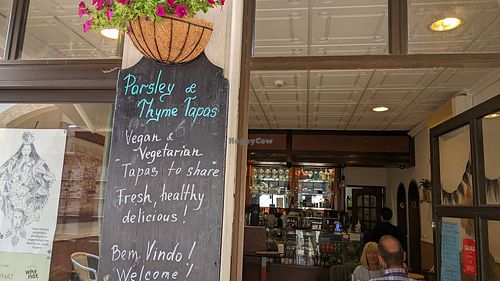 Parsley &
Thyme Tapas
Vegan &
Vegetarian
Tapas to share
Fresh, healthy
delicious!
Bem Vindo!
Welcome!
HappyCow
WHAT
why
not